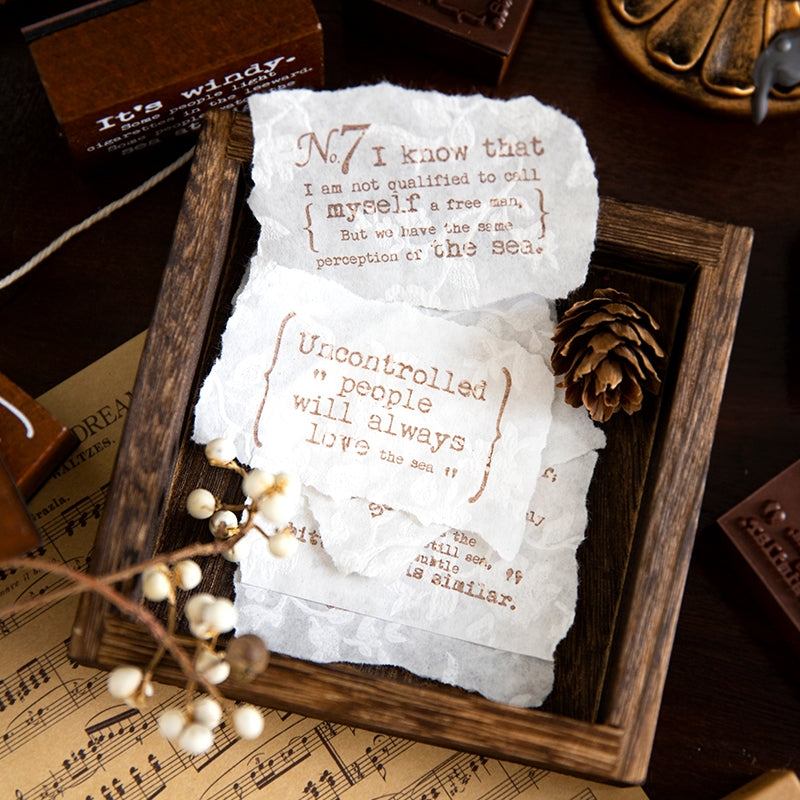 It's windy.
Some people light
cigarettes in the leeward.
Some people
No.7 I know that
I am not qualified to call
{ myself a free man, }
But we have the same
perception of the sea.
{ Uncontrolled }
" people
will always
love the sea "
the
still sea, "
subtle
is similar.
DREAM
WALTZES.